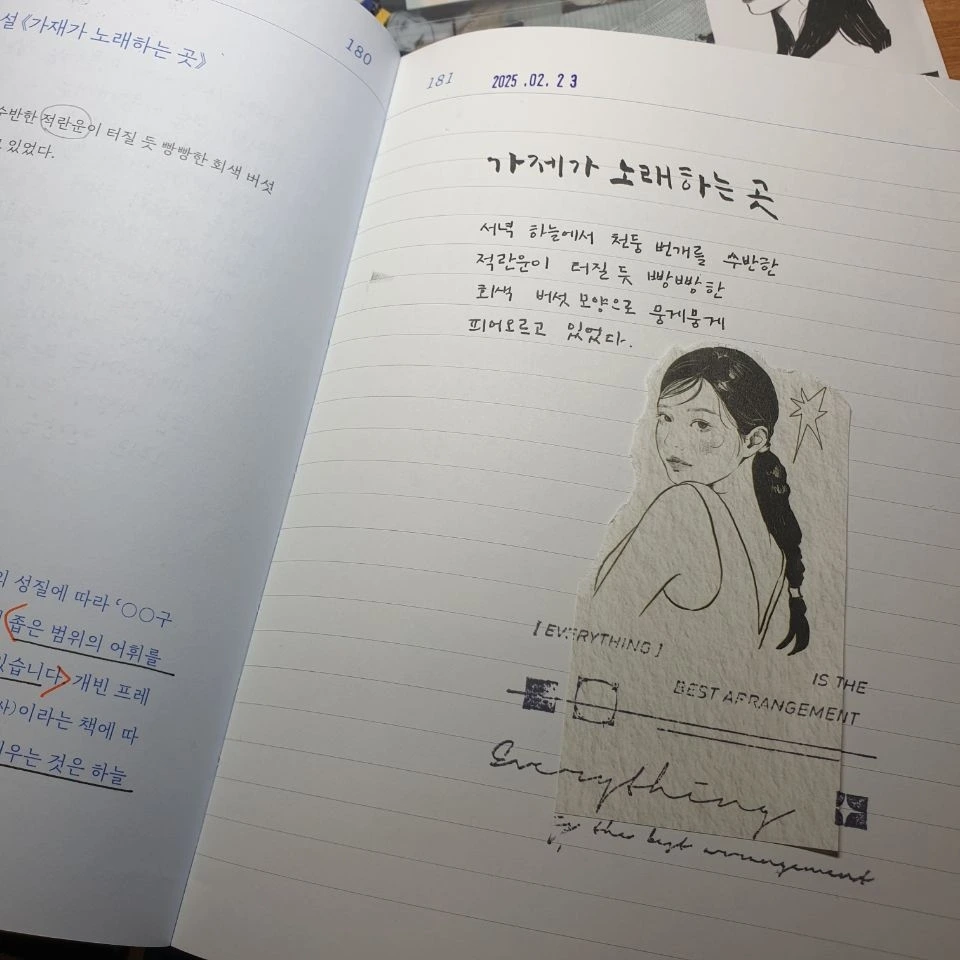 설 《가재가 노래하는 곳》
180
수반한 적란운이 터질 듯 빵빵한 회색 버섯
있었다.
성질에 따라 ‘○○구
좁은 범위의 어휘를
있습니다 개빈 프레
이라는 책에 따
우는 것은 하늘
181
2025.02.23
가제가 노래하는 곳
서녘 하늘에서 천둥 번개를 수반한
적란운이 터질 듯 빵빵한
회색 버섯 모양으로 뭉게뭉게
피어오르고 있었다.
[EVERYTHING]
IS THE
BEST ARRANGEMENT
Everything
is the best arrangement